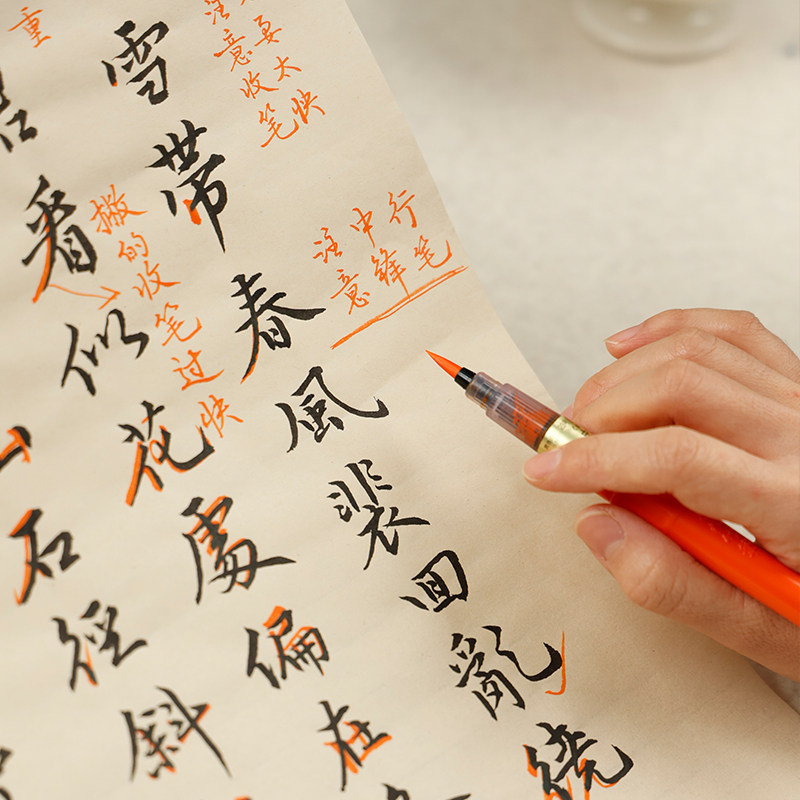 雪帶春風裴回亂繞
看似花處偏在
山石徑斜
重
注意收笔
要太快
撇的收笔过快
注意
中锋
行笔